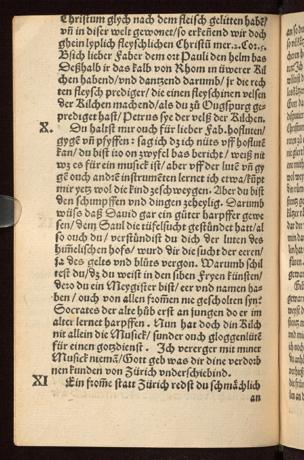 Christum glych nach dem fleisch gelitten habē/
vñ in diser welt gewonet/ so erkēnend wir doch
ghein lyplich fleyschlichen Christū mer. 2. Cor. 5.
Bsich lieber Faber dem ort Pauli den helm bas
Deßhalb ir das kalb von Rhom in üwerer Kil
chen habend/ vnd dantzend darumb/ ir die rech
ten fleysch prediger/ die einen fleyschinen velsen
der Kilchen machend/ als du zů Ougspurg ge-
prediget hast/ Petrus sye der velß der Kilchen.
X. Du haltst mir ouch für lieber Fab. hofluten/
gygē vñ pfyffen: sag ich dz ich nüts vff hoflutē
kan/ du bist io on zwyfel das bericht/ weiß nit
wz es für ein musick ist/ aber vff der lutē vñ gy
gē ouch andrē instrumētē lernet ich etwa/ kūpt
mir yetz wol die kind ze schweygen. Aber du bist
den schimpffen vnd dingen ze heylig. Darumb
wüß das Dauid gar ein gůter harpffer gewe
sen/ dem Saul die tüfelsucht gestündet hatt/ al
so ouch du/ verstündist du dich der luten des
himelischen hofs/ wurd dir die sucht der eeren/
ja des gelts vnd blůts vergon. Warumb schil
test du/ dz du weist in den siben Fryen künsten/
dero du ein Meygister bist/ eer vnd namen ha-
ben/ ouch von allen frōmen nie gescholten syn?
Socrates der alte hüb erst an jungen do er im
alter lernet harpffen. Nun hat doch din Kilch
nit allein die Musick/ sunder ouch gloggenlütē
für einen gotzdienst. Ich vererger mit miner
Musick niemā/ Gott geb was dir dine verdorb
nen kunden von Zürich vnderschiebind.
XI Ein frome statt Zürich redst du schmächlich
an